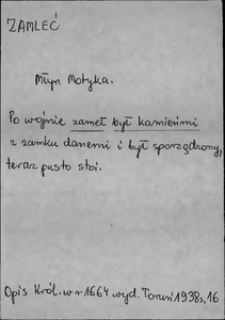 ZAMLEĆ
Młyn Motyka.
Po wojnie zameł był kamieńmi
z zamku danemi i był sporządzony,
teraz pusto stoi.
Opis Król. w r 1664 wyd. Toruń 1938 s, 16